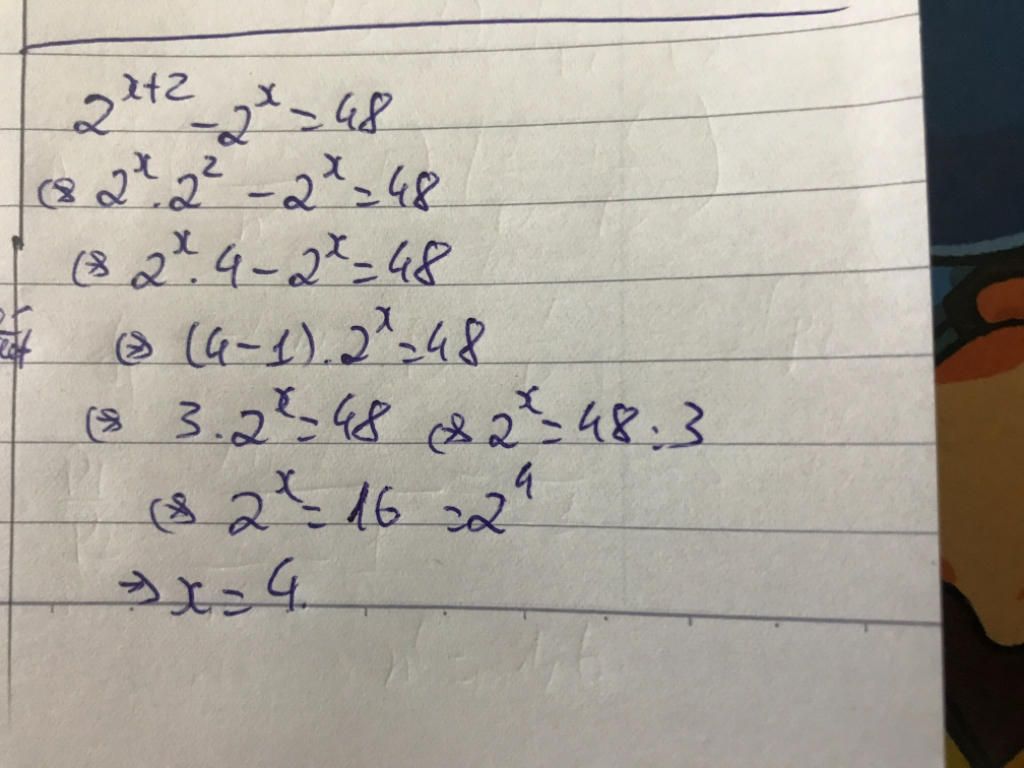 2^{x+2} - 2^x = 48
⇔ 2^x . 2^2 - 2^x = 48
⇔ 2^x . 4 - 2^x = 48
⇔ (4-1) . 2^x = 48
⇔ 3 . 2^x = 48 ⇔ 2^x = 48 : 3
⇔ 2^x = 16 = 2^4
⇒ x = 4.